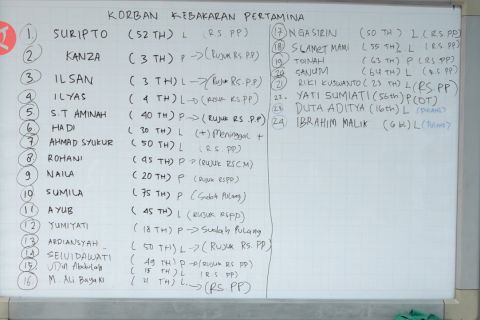 KORBAN KEBAKARAN PERTAMINA
1. SURIPTO (52 TH) L (RS. PP)
2 KANZA (3 TH) P → (RUJUK RS. PP)
3 ILSAN (3 TH) L → (RUJUK RS. PP)
4 ILYAS (4 TH) L → (RUJUK RS. PP)
5 S.T AMINAH (40 TH) P → (RUJUK RS. PP)
6 HADI (30 TH) L (+) Meninggal +
7 AHMAD SYUKUR (50 TH) L (RS. PP)
8 ROHANI (45 TH) P → (RUJUK RSCM)
9 NAILA (20 TH) P (RUJUK RSPP)
10 SUMILA (75 TH) P (Sudah Pulang)
11 AYUB (45 TH) L (RUJUK RSPP)
12 YUMIYATI (18 TH) P → Sudah Pulang
13 ARDIANSYAH (50 TH) L → (RUJUK RS. PP)
14 (49 TH) P → (RUJUK RS PP)
15 Abdulah (15 TH) L (RS. PP)
16 M. Ali (21 TH) L → (RS PP)
17 NGASIRIN (50 TH) L (RS. PP)
18 SLAMET (55 TH) L (RS. PP)
19 (63 TH) P (RS. PP)
20 SANUM (64 TH) L (RS. PP)
21 RIKI KUSWANTO (23 TH) L (RS PP)
22. YATI SUMIATI (56th) P (OT)
23 DUTA ADITYA (16th) L (PULANG)
24 IBRAHIM MALIK L (PULANG)